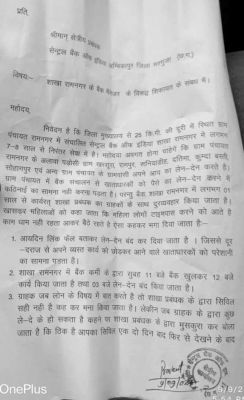 प्रति,
श्रीमान् क्षेत्रीय प्रबंधक
सेन्ट्रल बैंक ऑफ इंडिया अम्बिकापुर जिला सरगुजा (छ.ग.)
विषय:- शाखा रामनगर के बैंक मैनेजर के विरुद्ध शिकायत के संबंध में।
महोदय,
निवेदन है कि जिला मुख्यालय से 25 कि.मी. की दूरी में स्थित ग्राम
पंचायत रामनगर में संचालित सेन्ट्रल बैंक ऑफ इंडिया शाखा रामनगर में लगभग
7-8 साल से निरंतर सेवा में है। महोदया अवगत होना चाहेंगे कि ग्राम पंचायत
रामनगर के अलावा पड़ोसी ग्राम रामपुर, दतिमा, कुन्दा बस्ती,
सोहागपुर एवं अन्य ग्राम पंचायत के ग्रामवासी अपने आय का लेन-देन करते है।
ग्राम पंचायत में बैंक संचालन से खाताधारकों को पैसे का लेन-देन करने में
कठिनाई का सामना नहीं करना पड़ता है। परन्तु बैंक शाखा रामनगर में लगभग 01
साल से कार्यरत् शाखा प्रबंधक का ग्राहकों के साथ दुरव्यवहार किया जाता है।
खासकर महिलाओं को कहा जाता कि महिला लोगों टाइमपास करने को आते है
काम धाम नहीं रहता आकर बैठे रहते है ऐसा कहकर भगा दिया जाता है:-
1. आयदिन लिंक फेल बताकर लेन-देन बंद कर दिया जाता है। जिससे दूर
-दराज से अपने व्यस्त कार्य को छोड़कर आने वाले खाताधारकों को परेशानी
का सामना पड़ता है।
2. शाखा रामनगर में बैंक कर्मी के द्वारा सुबह 11 बजे बैंक खुलकर 12 बजे
कार्य किया जाता है तथा 03 बजे लेन-देन बंद किया जाता है।
3. ग्राहक जब लोन के विषय में बात करते है तो शाखा प्रबंधक के द्वारा सिविल
सही नहीं है कह कर मना किया जाता है। लेकिन जब ग्राहक के द्वारा कुछ
ले-दे के हो सकता है कहने पर शाखा प्रबंधक के द्वारा मुस्कुरा कर बोला
जाता है कि ठिक है आपका सिविल एक दो दिन बाद फिर से देखने के बाद
OnePlus